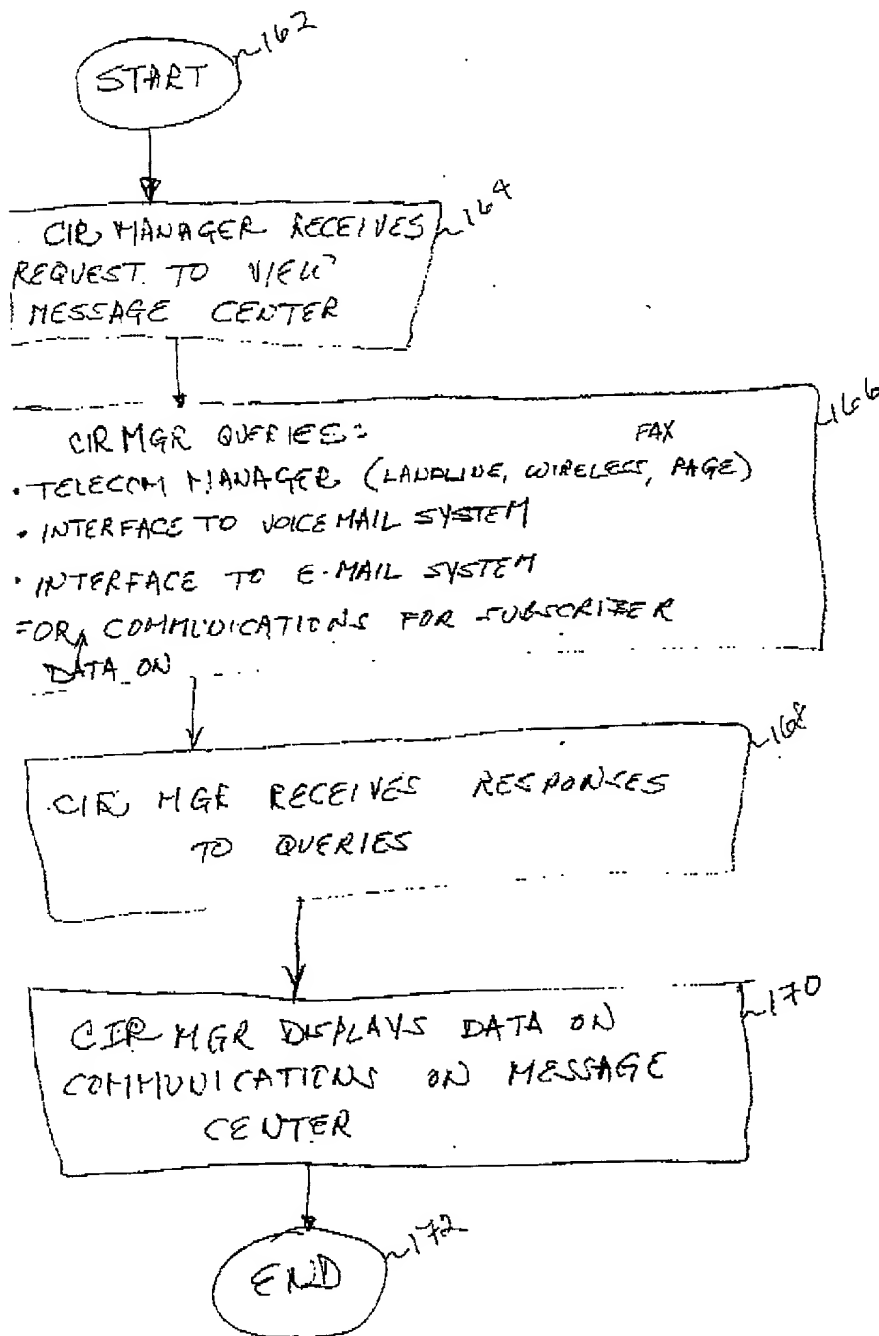 START
~162
CIR MANAGER RECEIVES
REQUEST TO VIEW
MESSAGE CENTER
~164
CIR MGR QUERIES:
FAX
• TELECOM MANAGER (LANDLINE, WIRELESS, PAGE)
• INTERFACE TO VOICEMAIL SYSTEM
• INTERFACE TO E-MAIL SYSTEM
FOR COMMUNICATIONS FOR SUBSCRIBER
DATA ON
~166
CIR MGR RECEIVES RESPONSES
TO QUERIES
~168
CIR MGR DISPLAYS DATA ON
COMMUNICATIONS ON MESSAGE
CENTER
~170
END
~172